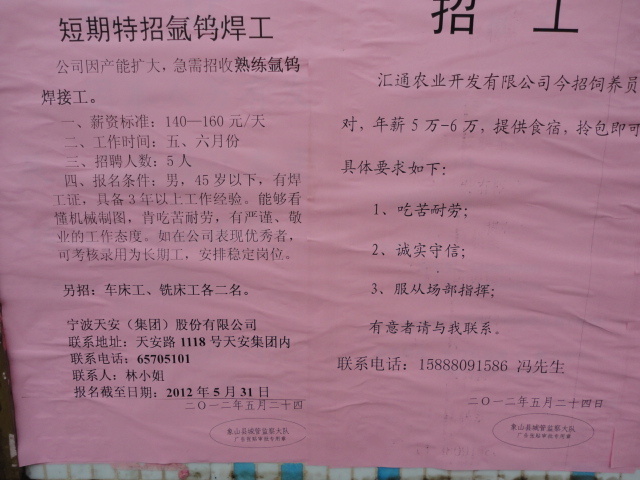 短期特招氩钨焊工
公司因产能扩大，急需招收熟练氩钨
焊接工。
一、薪资标准：140—160元/天
二、工作时间：五、六月份
三、招聘人数：5人
四、报名条件：男，45岁以下，有焊
工证，具备3年以上工作经验。能够看
懂机械制图，肯吃苦耐劳，有严谨、敬
业的工作态度。如在公司表现优秀者，
可考核录用为长期工，安排稳定岗位。
另招：车床工、铣床工各二名。
宁波天安（集团）股份有限公司
联系地址：天安路1118号天安集团内
联系电话：65705101
联系人：林小姐
报名截至日期：2012年5月31日
二〇一二年五月二十四
象山县城管监察大队
广告张贴审核专用章
招 工
汇通农业开发有限公司今招饲养员
对，年薪5万-6万，提供食宿，拎包即可
具体要求如下：
1、吃苦耐劳；
2、诚实守信；
3、服从场部指挥；
有意者请与我联系。
联系电话：15888091586 冯先生
二〇一二年五月二十四日
象山县城管监察大队
广告张贴审核专用章